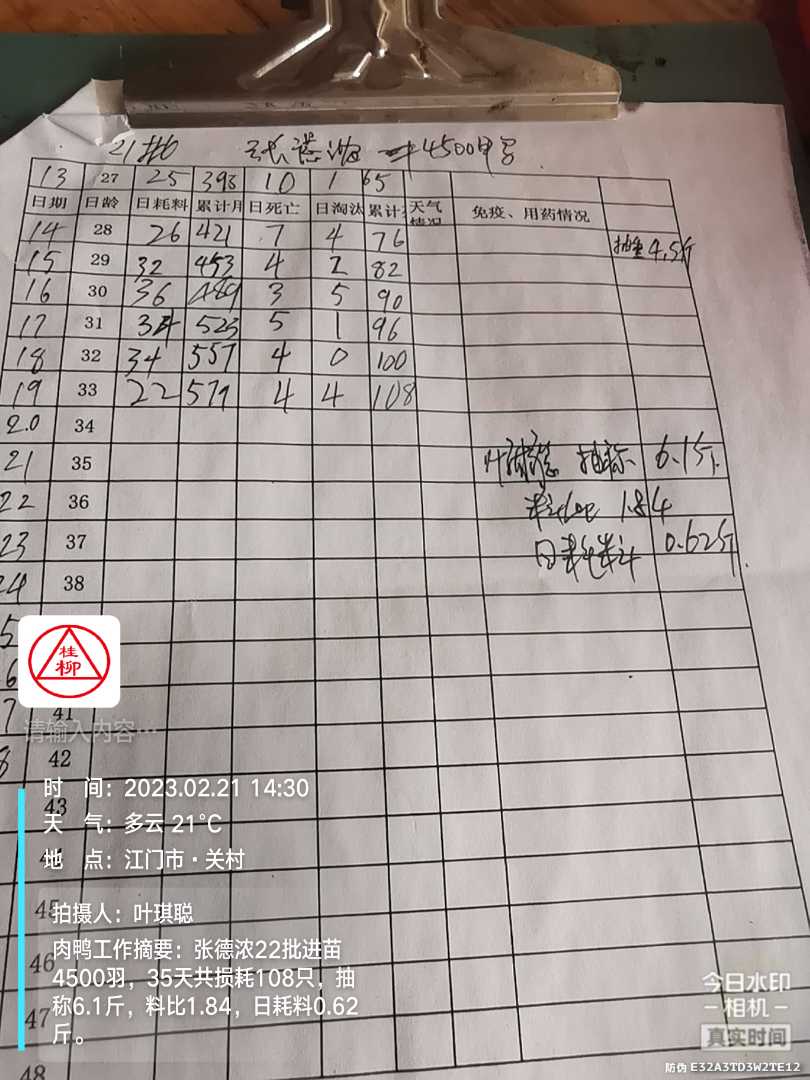 21#6 张德浓 4500甲号
13 27 25 398 10 1 65
日期 日龄 日耗料 累计用 日死亡 日淘汰 累计 天气情况 免疫、用药情况
14 28 26 421 7 4 76 抽重4.5斤
15 29 32 453 4 2 82
16 30 36 489 3 5 90
17 31 34 523 5 1 96
18 32 34 557 4 0 100
19 33 22 579 4 4 108
20 34
21 35 叶琪聪 抽称 6.1斤
22 36 料比 1.84
23 37 日耗料 0.62斤
24 38
5
6
7 41
8 42
43
45
46
47
48
桂柳
请输入内容…
时 间：2023.02.21 14:30
天 气：多云 21℃
地 点：江门市·关村
拍摄人：叶琪聪
肉鸭工作摘要：张德浓22批进苗
4500羽，35天共损耗108只，抽
称6.1斤，料比1.84，日耗料0.62
斤。
今日水印
相机
真实时间
防伪 E32A3TD3W2TE12